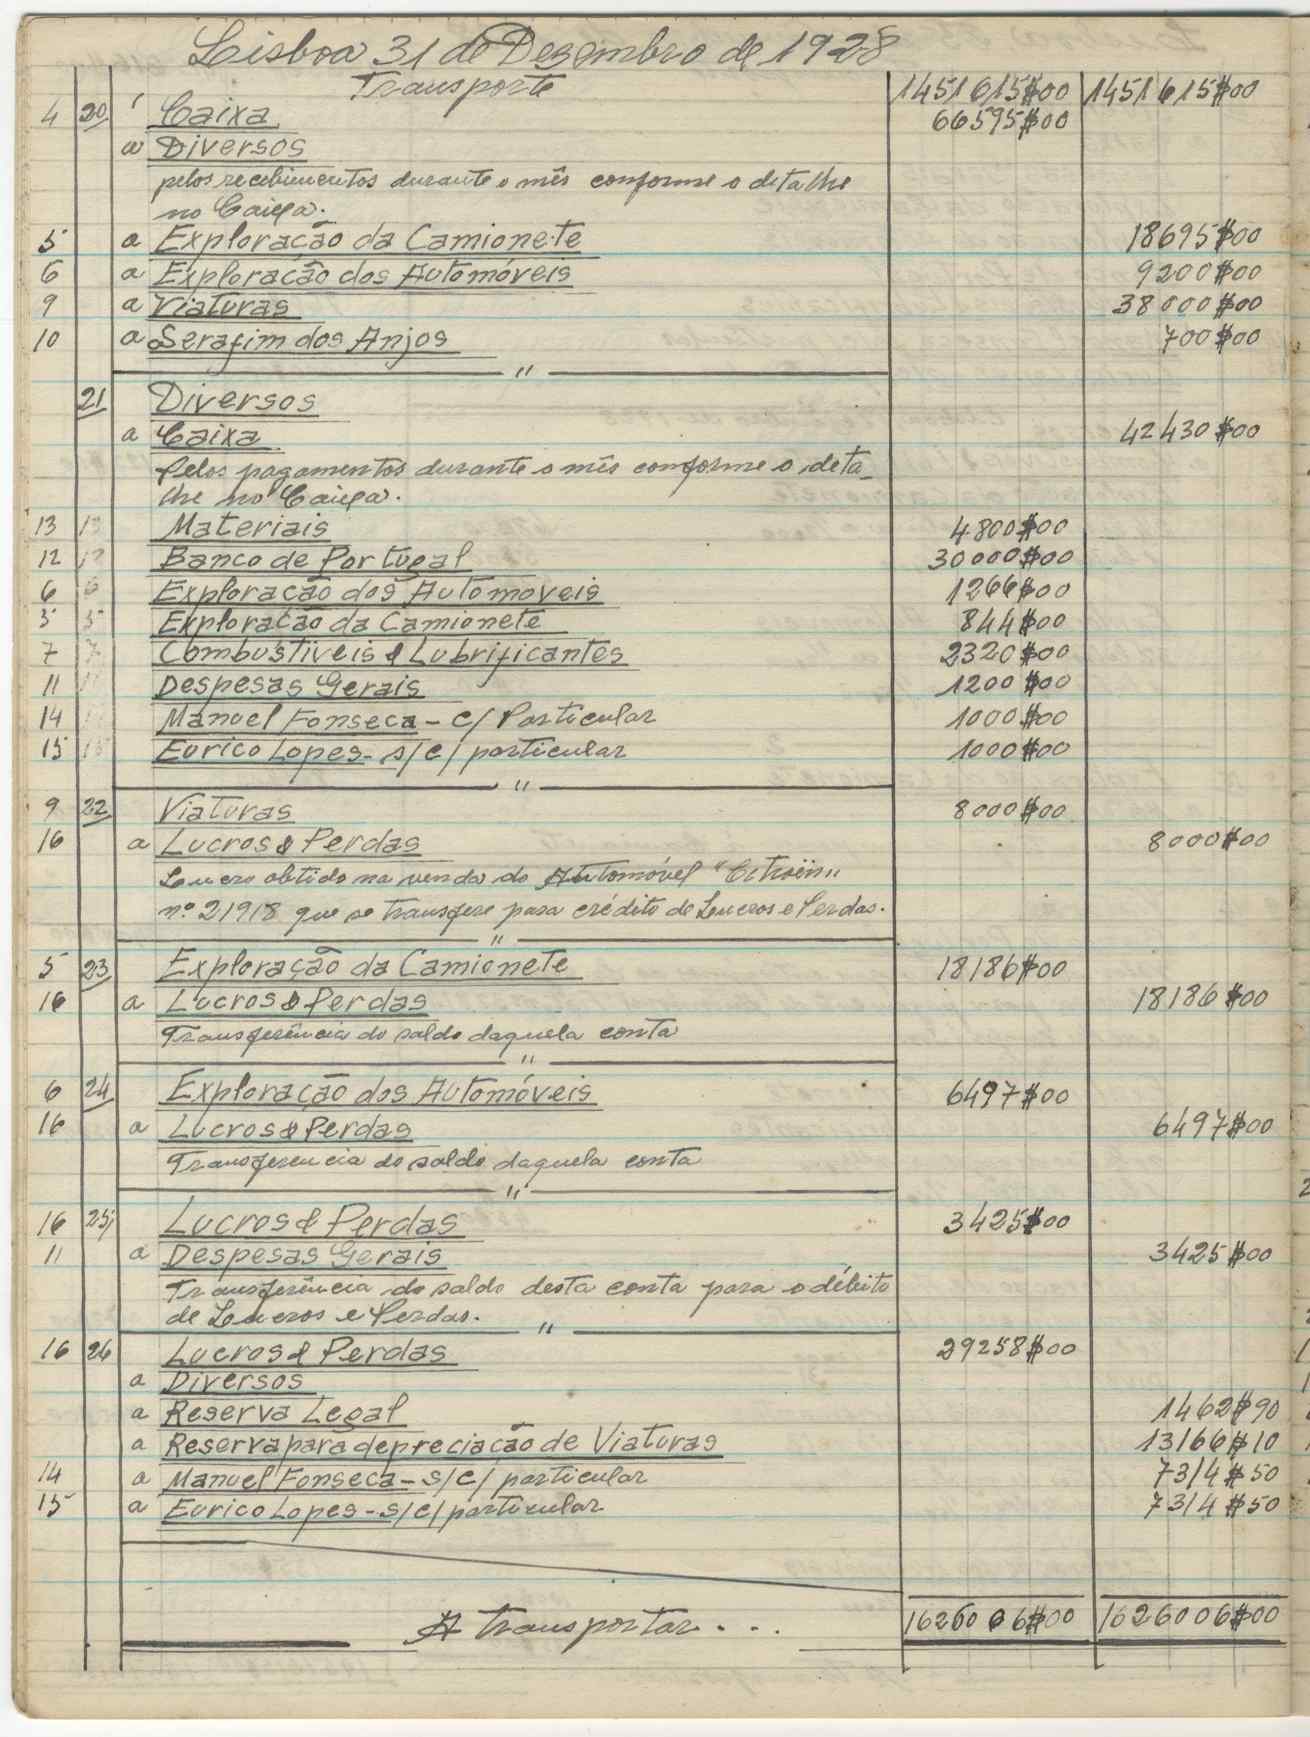 Lisboa 31 de Dezembro de 1928
Transporte 1451615$00 1451615$00
4 20 Caixa 66595$00
a Diversos
pelos recebimentos durante o mês conforme o detalhe
no Caixa.
5 a Exploração da Camionete 18695$00
6 a Exploração dos Automóveis 9200$00
9 a Viaturas 38000$00
10 a Serafim dos Anjos 700$00
"
21 Diversos
a Caixa 42430$00
Pelos pagamentos durante o mês conforme o deta_
lhe no Caixa.
13 13 Materiais 4.800$00
12 12 Banco de Portugal 30000$00
6 6 Exploração dos Automoveis 1266$00
5 5 Exploração da Camionete 844$00
7 7 Combustiveis & Lubrificantes 2320$00
11 11 Despesas Gerais 1200$00
14 Manuel Fonseca - c/ Particular 1000$00
15 15 Eurico Lopes - s/c/ particular 1000$00
"
9 22 Viaturas 8000$00
16 a Lucros & Perdas 8000$00
Lucro obtido na venda do Automóvel "Citroën"
nº 21918 que se transfere para crédito de Lucros e Perdas.
"
5 23 Exploração da Camionete 18186$00
16 a Lucros & Perdas 18186$00
Transferência do saldo daquela conta
"
6 24 Exploração dos Automóveis 6497$00
16 a Lucros & Perdas 6497$00
Transferencia do saldo daquela conta
"
16 25 Lucros & Perdas 3425$00
11 a Despesas Gerais 3425$00
Transferência do saldo desta conta para o débito
de Lucros e Perdas.
"
16 26 Lucros & Perdas 29258$00
a Diversos
a Reserva Legal 1462$90
a Reserva para depreciação de Viaturas 13166$10
14 a Manuel Fonseca - s/c/ particular 7314$50
15 a Eurico Lopes - s/c/ particular 7314$50
A transportar . . . 1626006$00 1626006$00